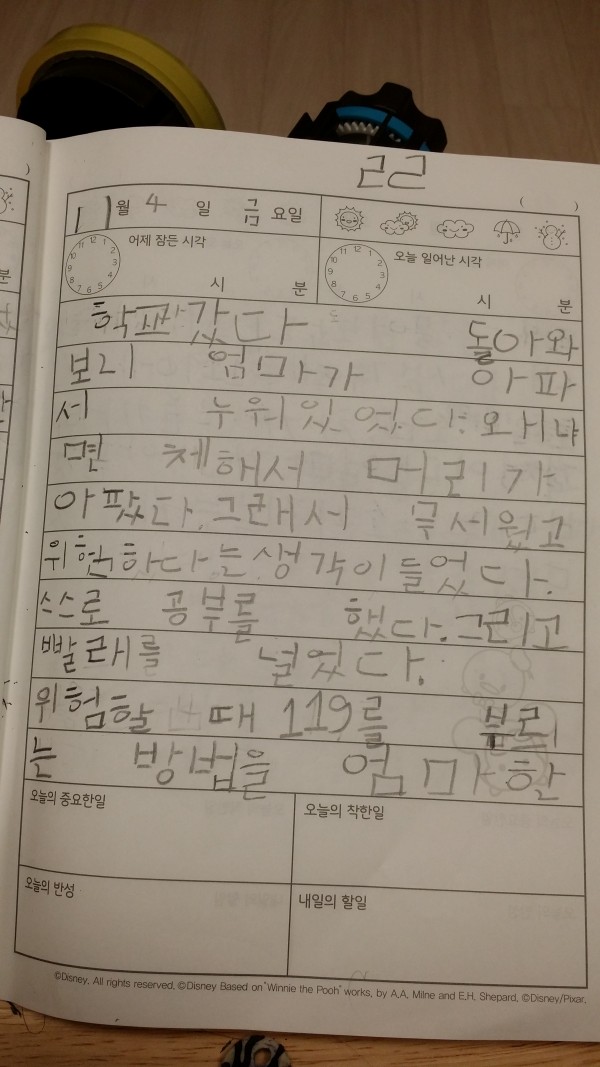 ( )
11월 4 일 금 요일
어제 잠든 시각
12 1 2 3 4 5 6 7 8 9 10 11
시 분
오늘 일어난 시각
12 1 2 3 4 5 6 7 8 9 10 11
시 분
학교갔다 돌아와
보니 엄마가 아파
서 누워있었다. 왜냐
면 체해서 머리가
아팠다. 그래서 무서웠고
위험하다는생각이들었다.
스스로 공부를 했다. 그리고
빨래를 널었다.
위험할 때 119를 부르
는 방법을 엄마한
오늘의 중요한일
오늘의 착한일
오늘의 반성
내일의 할일
©Disney. All rights reserved. ©Disney Based on "Winnie the Pooh" works, by A.A. Milne and E.H. Shepard. ©Disney/Pixar.